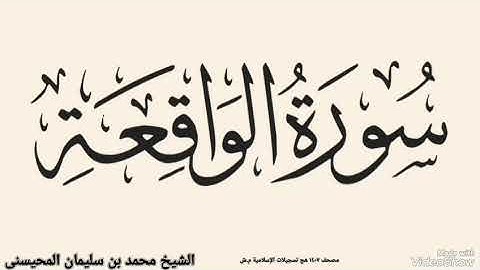 سُورَةُ الوَاقِعَةِ
الشيخ محمد بن سليمان المحيسنى
مصحف ١٤٠٧ هج تسجيلات الإسلامية م.ش
Made with
VideoShow